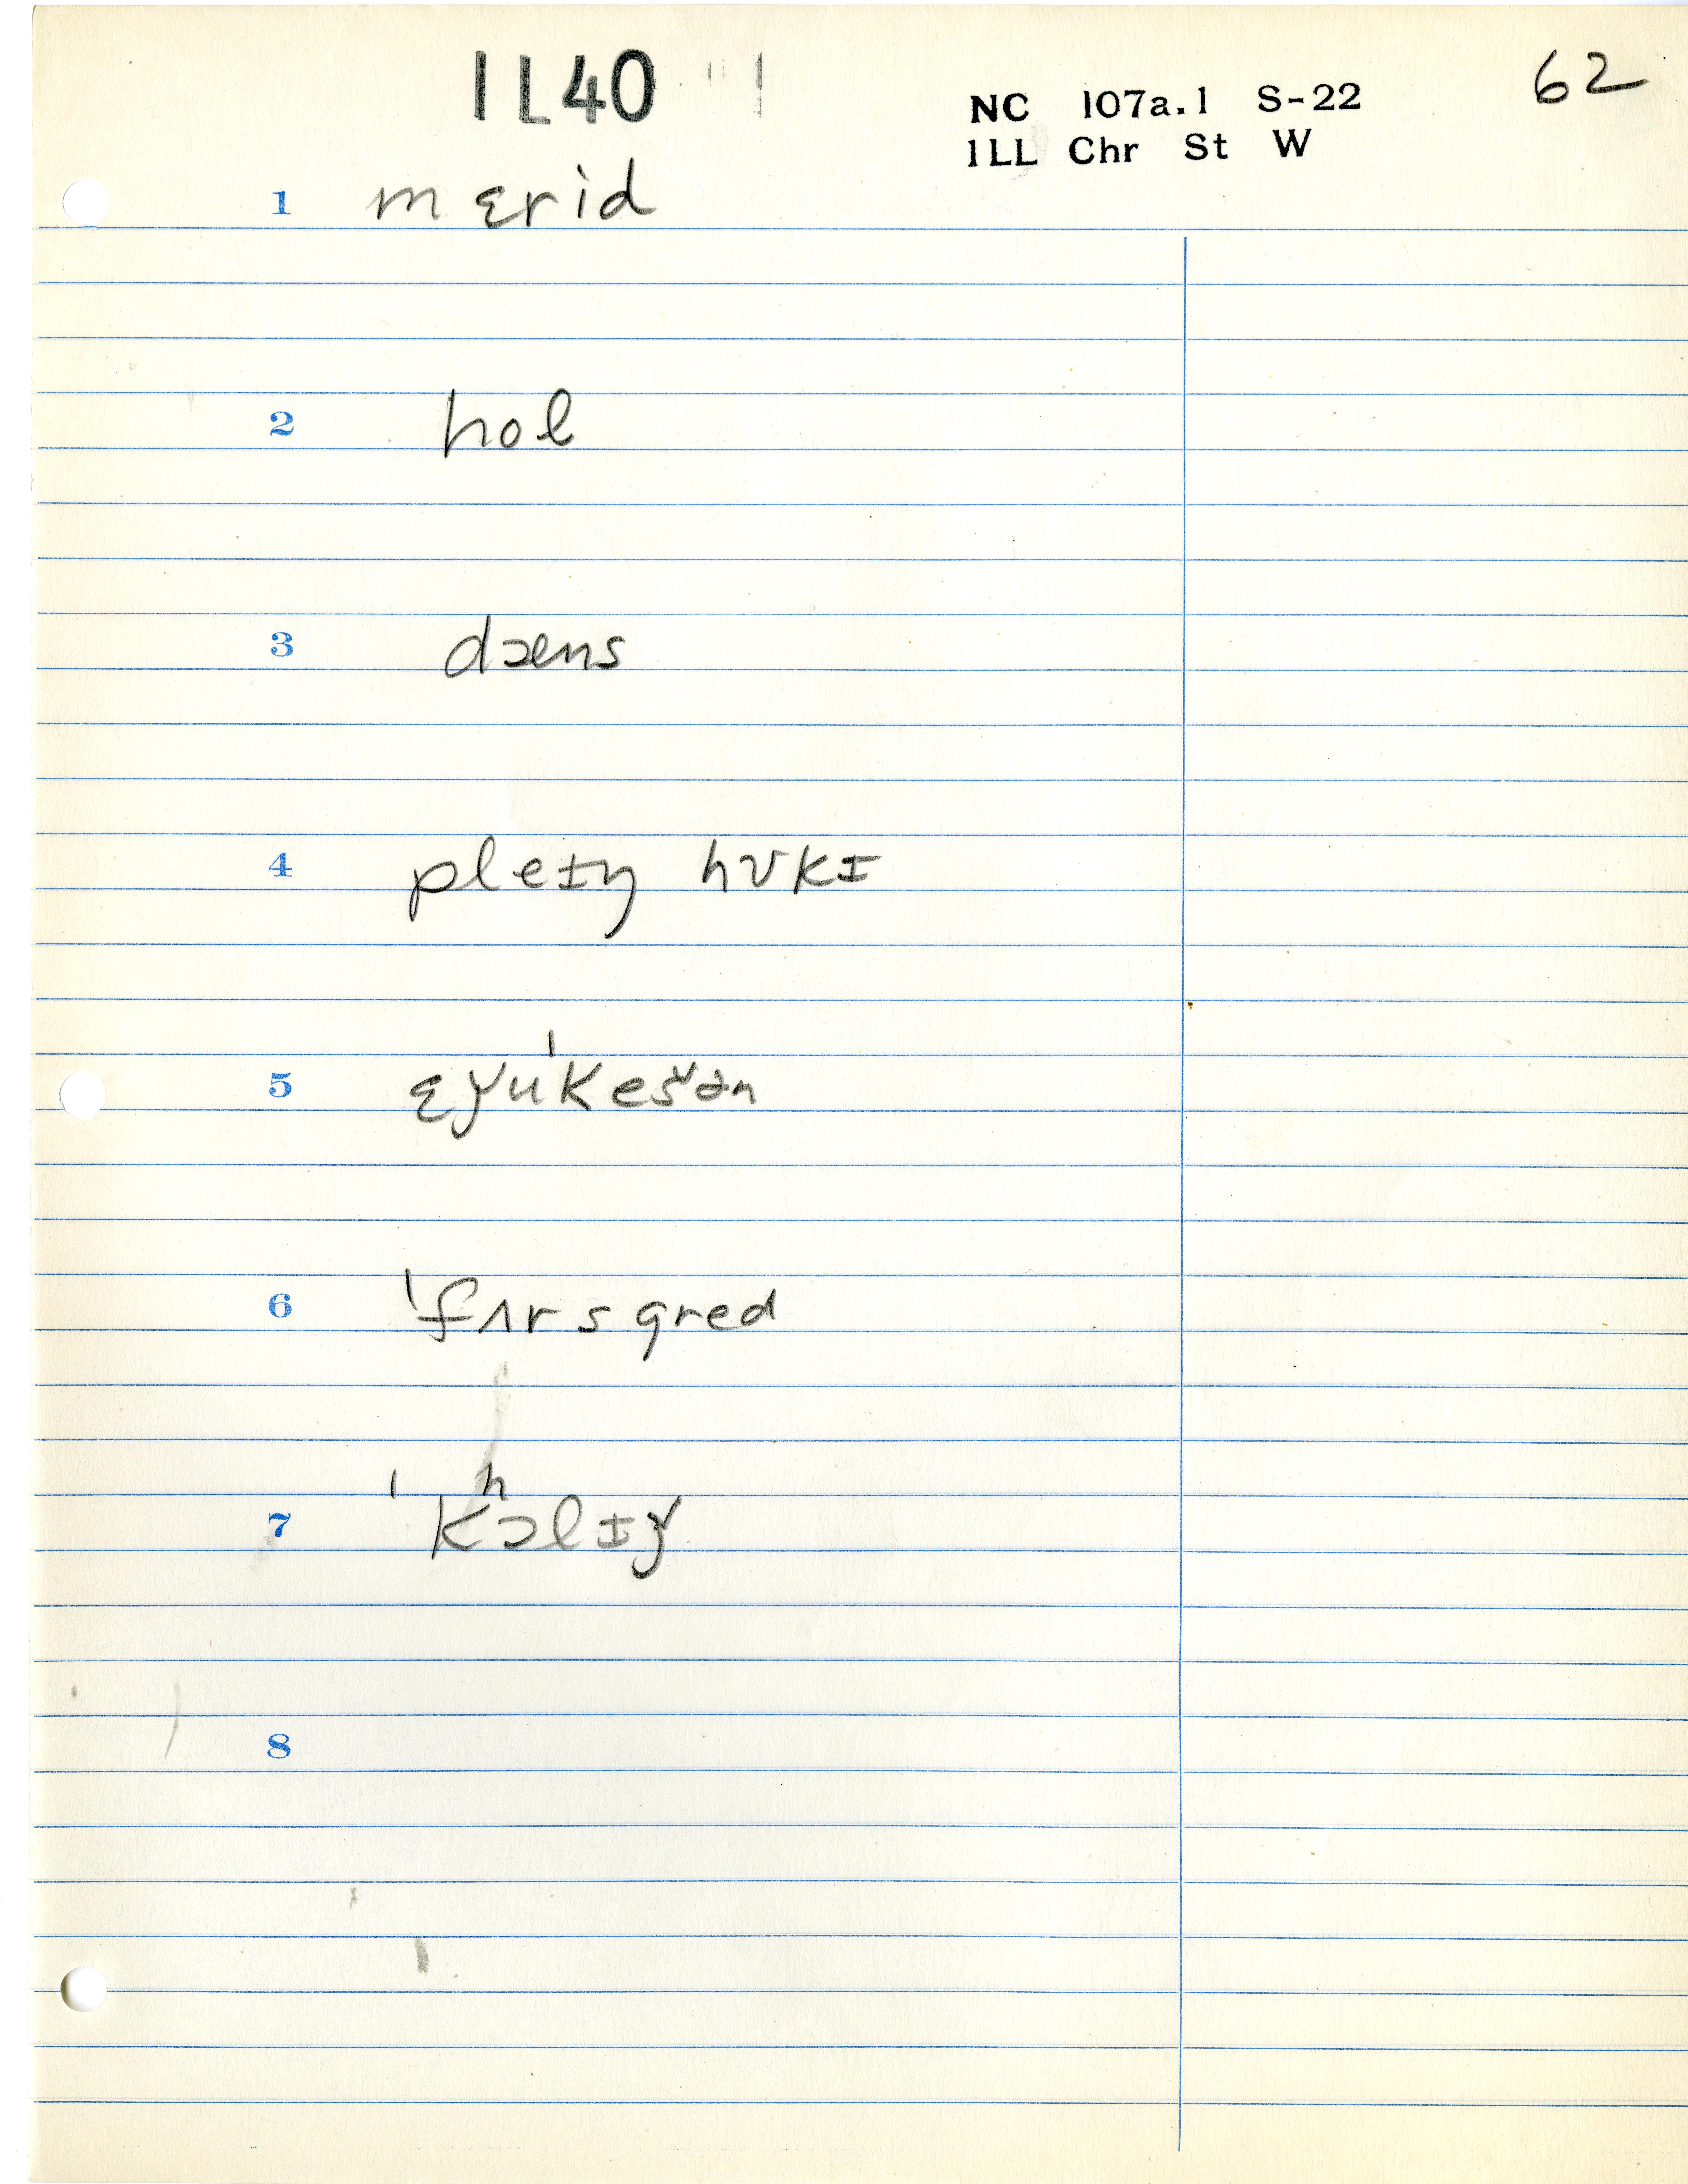 1L40
62
NC 107a.1 S-22
1LL Chr St W
1 mɛrid
2 hol
3 dæns
4 pleɪŋ hʊkɪ
5 ɛǰuˈkešən
6 ˈfʌrs gred
7 ˈkʰɔlɪǰ
8